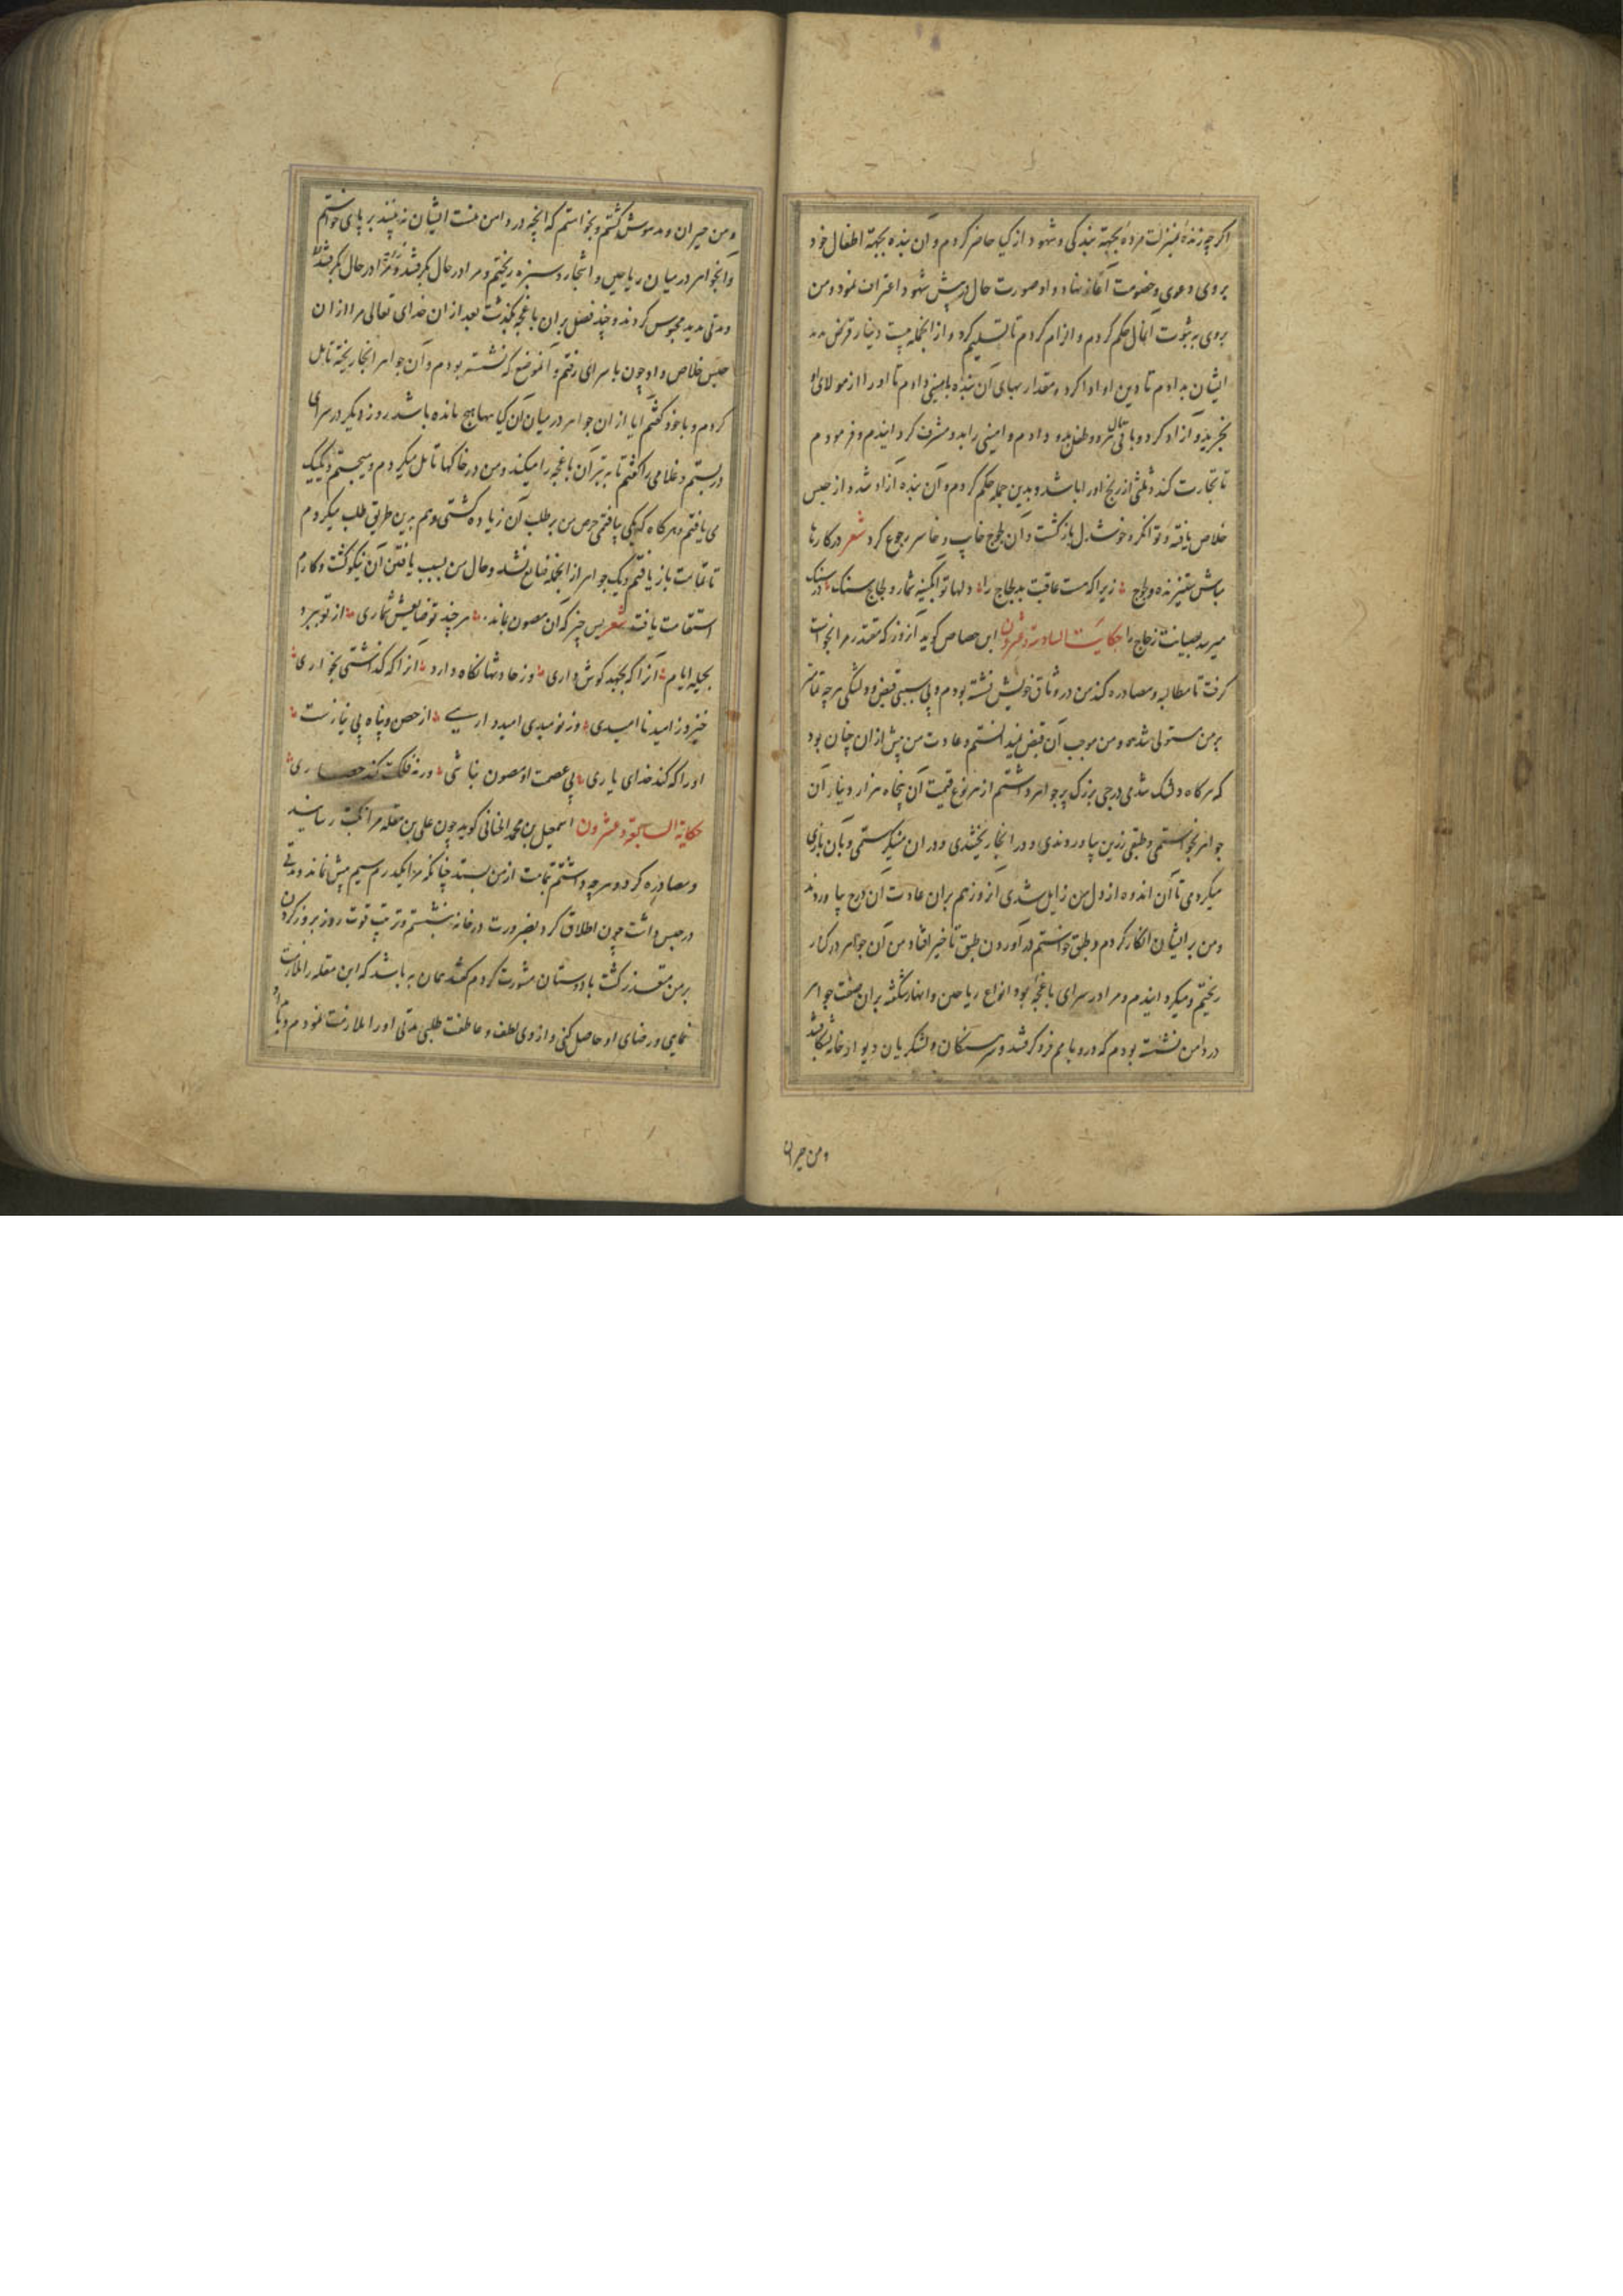 اگر چه زنده بمنزلت مرده بجهة بندگی و شهود از کیا حاضر کردم و آن بنده بجهة اطفال خود
بروی دعوی و خصومت آغاز نهاد و او صورت حال در پیش شهود اعتراف نمود و من
بروی به ثبوت آن حال حکم کردم و الزام کردم تا تسلیم کرد و از انجمله بیست دینار قرض مدد
ایشان بدادم تا دین او ادا کرد و مقدار بهای آن بنده بامینی دادم تا او را از مولای او
بخرید و آزاد کرد و باقی مال مرد و طفل بدو دادم و امینی را بدو مشرف کردانیدم و فرمودم
تا تجارت کند و ثلثی از ربح او را باشد و بدین جمله حکم کردم و آن بنده آزاد شد و از حبس
خلاص یافته و توانگر و خوشدل بازگشت و آن لجوج خایب و خاسر رجوع کرد شعر در کارها
مباش ستیزنده و لجوج زیرا که هست عاقبت بد لجاج را دلها تو آبگینه شمار و لجاج سنک در سنک
میرسد بصیانت زجاج را حکایت السادسة و عشرون ابن جصاص گوید آن روز که مقتدر مرا بخواست
گرفت تا مطالبه و مصادره کند من در وثاق خویش نشسته بودم و بی سببی قبض و دلتنگی هر چه تمامتر
بر من مستولی شد و من موجب آن قبض نمیدانستم و عادت من پیش از آن چنان بود
که هرگاه دلتنگ شدمی درجی بزرگ پر جواهر داشتم از هر نوع قیمت آن پنجاه هزار دینار آن
جواهر بخواستمی و طبقی زرین بیاوردندی و در آنجا ریختندی و در آن مینگریستمی و بآن بازی
میکردمی تا آن اندوه از دل من زایل شدی آن روز هم بر آن عادت آن درج بیاوردند
و من بر ایشان انکار کردم و طبق خواستم در آوردن طبق تاخیر افتاد من آن جواهر در کنار
ریختم و میگردانیدم و مرا در سرای باغچه بود انواع ریاحین و انهار شکفته بر آن صفت جواهر
در دامن نشسته بودم که در و بامم فرو گرفتند و سرهنگان و لشکریان دیوار خانه بشکافتند
و من حیران
و من حیران و مدهوش گشتم و نخواستم که آنچه در دامن منست ایشان نه بینند بر پای خواستم
و آن جواهر در میان ریاحین و اشجار و سبزه ریختم و مرا در حال بگرفتند
و مدتی مدید محبوس کردند و چند فصل بران باغچه بگذشت بعد ازان خدای تعالی مرا ازان
حبس خلاص داد و چون با سرای رفتم و آن موضع که نشسته بودم و آن جواهر آنجا ریخته تامل
کردم و با خود گفتم آیا از آن جواهر در میان آن گیاهها هیچ مانده باشد روز دیگر در سرای
در بستم و غلامی را گفتم تا به تبر آن باغچه را میکند و من در خاکها تامل میکردم و میجستم و یک یک
می یافتم و هرگاه که یکی بیافتمی حرص من بر طلب آن زیاده گشتی و هم برین طریق طلب میکردم
تا تمامت بازیافتم و یک جواهر از انجمله ضایع نشد و حال من بسبب یافتن آن نیکو گشت و کارم
استقامت یافت شعر بس چیز که آن مصون بماند هر چند تو ضایعش شماری از تو ببرد
بحیله ایام آنرا که بجهد گوش داری وز حادثها نگاه دارد آنرا که گذاشتی بخواری
خیزد ز امید ناامیدی وز نومیدی امیدواری از حصن و پناه بی نیازست
او را که کند خدای یاری بی عصمت او مصون نباشی ورنه فلکت کند حصاری
حکایة السابعة و عشرون اسمعیل بن محمد الخنانی گوید چون علی بن مقله مرا نکبت رسانید
و مصادره کرد و هر چه داشتم تمامت از من بستد چنانکه مرا یکدرم سیم بیش نماند و مدتی
در حبس داشت چون اطلاق کرد بضرورت در خانه بنشستم و ترتیب قوت روز بروز کردن
بر من متعذر گشت با دوستان مشورت کردم گفتند همان به باشد که ابن مقله را ملازمت
نمایی و رضای او حاصل کنی و از وی لطف و عاطفت طلبی مدتی او را ملازمت نمودم و مرا